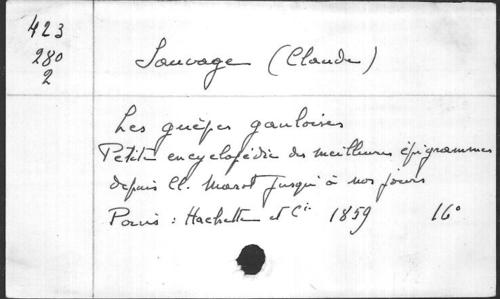 423
280
2
Sauvage (Claude)
Les guêpes gauloises
Petite encyclopédie des meilleures épigrammes
depuis Cl. Marot jusqu'à nos jours
Paris : Hachette et Cie 1859 16°